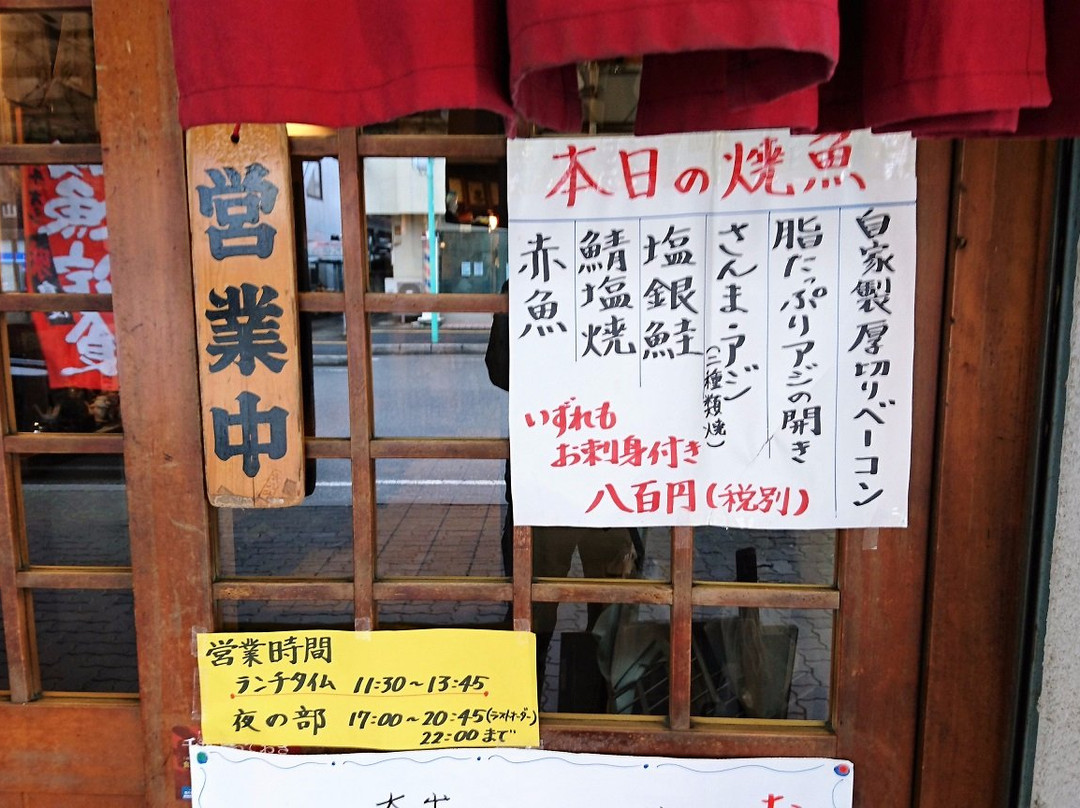 営業中
本日の焼魚
自家製厚切りベーコン
脂たっぷりアジの開き
さんま・アジ
(二種類焼)
塩銀鮭
鯖塩焼
赤魚
いずれも
お刺身付き
八百円(税別)
営業時間
ランチタイム 11:30~13:45
夜の部 17:00~20:45(ラストオーダー)
22:00まで